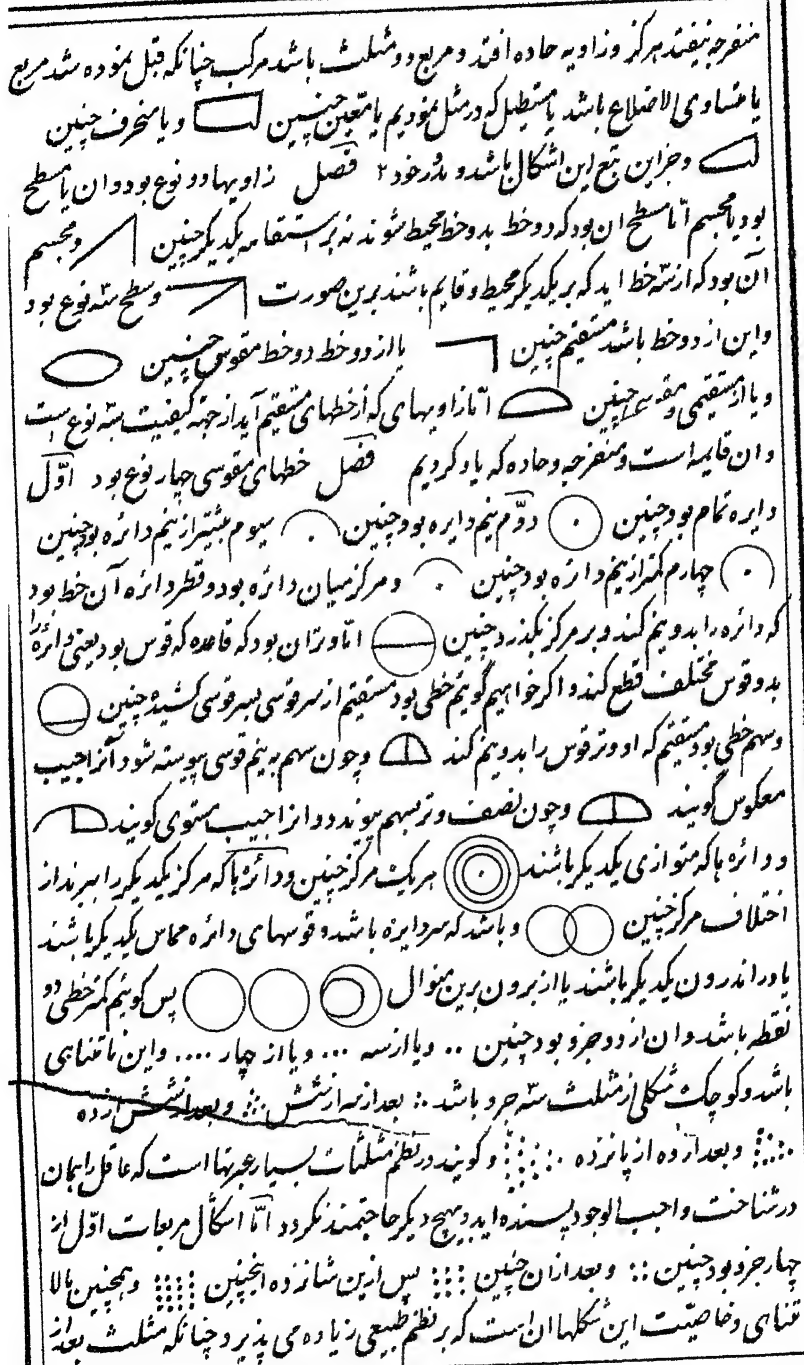 منفرجه نیفتد هرگز و زاویه حاده افتد و مربع دو مثلث باشد مرکب چنانکه قبل نموده شد مربع
یا متساوی الاضلاع باشد یا مستطیل که در مثل نمودیم یا معین چنین و یا منحرف چنین
و جز این تبع این اشکال باشد و بذر خود ۲ فصل زاویها دو نوع بود و ان یا مسطح
بود یا مجسم امّا مسطح ان بود که دو خط بدو خط محیط شوند نه بر استقامه یکدیگر چنین و مجسم
آن بود که از سه خط اید که بر یکدیگر محیط و قایم باشند برین صورت و سطح سه نوع بود
و این از دو خط باشد مستقیم چنین یا از دو خط دو خط مقوسی چنین
و یا از مستقیمی و مقوسی چنین امّا زاویهای که از خطهای مستقیم آید از جهة کیفیت سه نوع است
و ان قایمه است و منفرجه و حاده که یاد کردیم فصل خطهای مقوسی چهار نوع بود اوّل
دایره تمام بود چنین دوّم نیم دایره بود چنین سیوم بیشتر از نیم دائره بود چنین
چهارم کمتر از نیم دائره بود چنین و مرکز میان دائره بود و قطر دائره آن خط بود
که دائره را بدو نیم کند و بر مرکز بگذرد چنین امّا وتر ان بود که قاعده که قوس بود یعنی دائره را
بدو قوس مختلف قطع کند و اکر خواهیم گوئیم خطی بود مستقیم از سر قوسی بسر قوسی کشیده چنین
و سهم خطی بود مستقیم که او وتر قوس را بدو نیم کند و چون سهم به نیم قوسی پیوسته شود آنرا جیب
معکوس گویند و چون نصف وتر بسهم پیوندد و انرا جیب مستوی کویند
و دائره ها که متوازی یکدیگر باشند هریک مرکز چنین و دائره ها که مرکز یکدیگر را ببرند از
اختلاف مرکز چنین و باشد که سر دایره باشد و قوسهای دائره مماس یکدیگر باشند
یا در اندرون یکدیگر باشند یا از برون برین منوال پس گوئیم کمتر خطی دو
نقطه باشد و ان از دو جزو بود چنین .. و یا از سه ... و یا از چهار .... و این نا تناهی
باشد و کوچک شکلی از مثلث سه جزو باشد بعد از سه از شش و بعد از شش از ده
و بعد از ده از پانزده و کویند در نظم مثلثات بسیار عبرتها است که عاقل را همان
در شناخت واجب الوجود پسنده اید و بهیچ دیگر حاجتمند نکردد امّا اشکال مربعات اوّل از
چهار جزو بود چنین و بعد ازان چنین پس ازین شانزده اینچنین و همچنین بالا
تناهی و خاصیّت این شکلها ان است که بر نظم طبیعی زیاده می پذیرد چنانکه مثلث بعد از